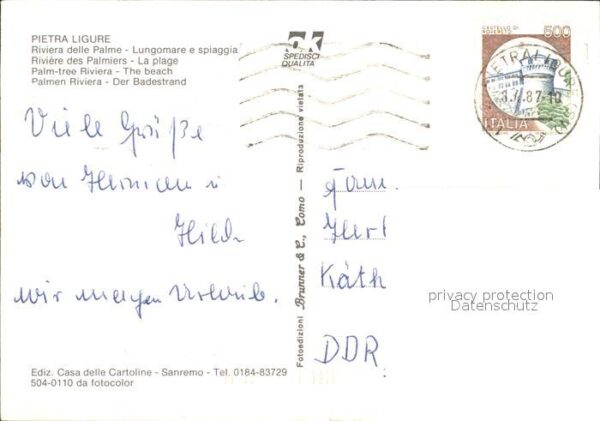 PIETRA LIGURE
Riviera delle Palme - Lungomare e spiaggia
Rivière des Palmiers - La plage
Palm-tree Riviera - The beach
Palmen Riviera - Der Badestrand
ok
SPEDISCI
QUALITÀ
CASTELLO DI
ROVERETO
500
ITALIA
87-10
Viele Grüße
von Hermann u
Hilde
wir machen Urlaub.
Fam.
Kurt
Käth
DDR
privacy protection
Datenschutz
Fotoedizioni Brunner & C., Como - Riproduzione vietata
Ediz. Casa delle Cartoline - Sanremo - Tel. 0184-83729
504-0110 da fotocolor